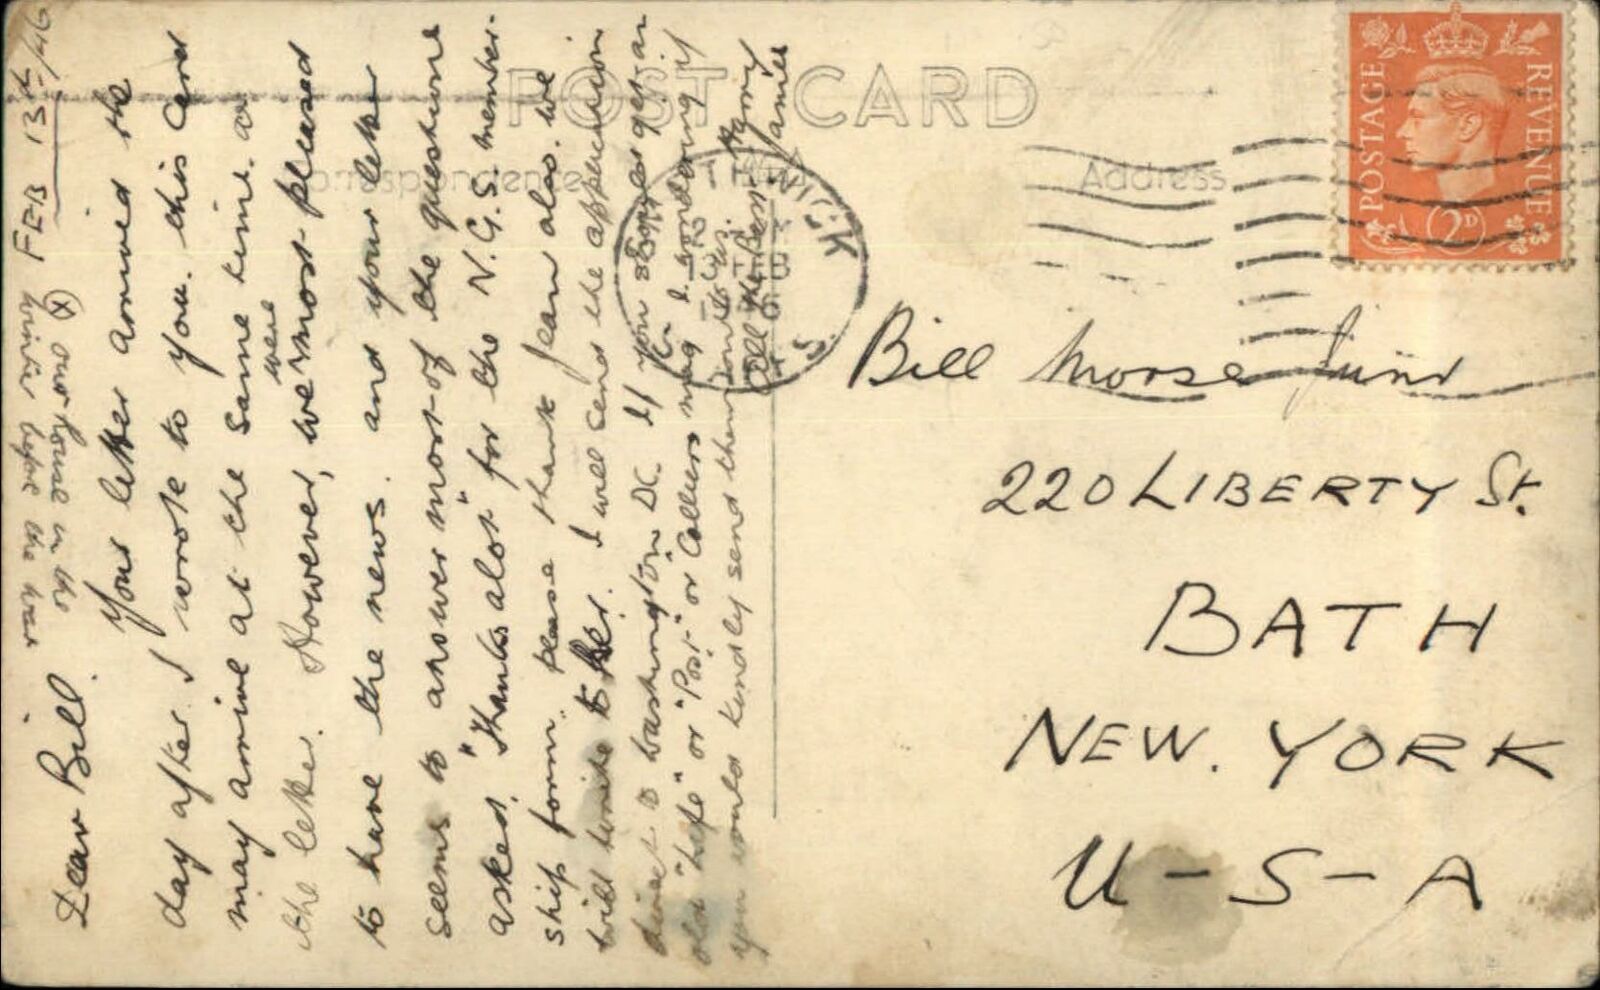 POST CARD
Correspondence
Address
POSTAGE
REVENUE
2D
FEB 13th/46
(X) our house in the
winter before the war
Dear Bill.
Your letter arrived the
day after I wrote to you. this card
may arrive at the same time as
the letter. However, we were most pleased
to have the news. and your letter
seems to answer most of the questions
asked. "Thanks alot" for the N.G.S. member-
ship form. please thank Jean also. we
will write to her. I will send the application
direct to Washington DC. If you
old "Life" or "Post" or Colliers mag
you would kindly send them
All the Best
Bill Morse Junr
220 LIBERTY St.
BATH
NEW. YORK
U-S-A